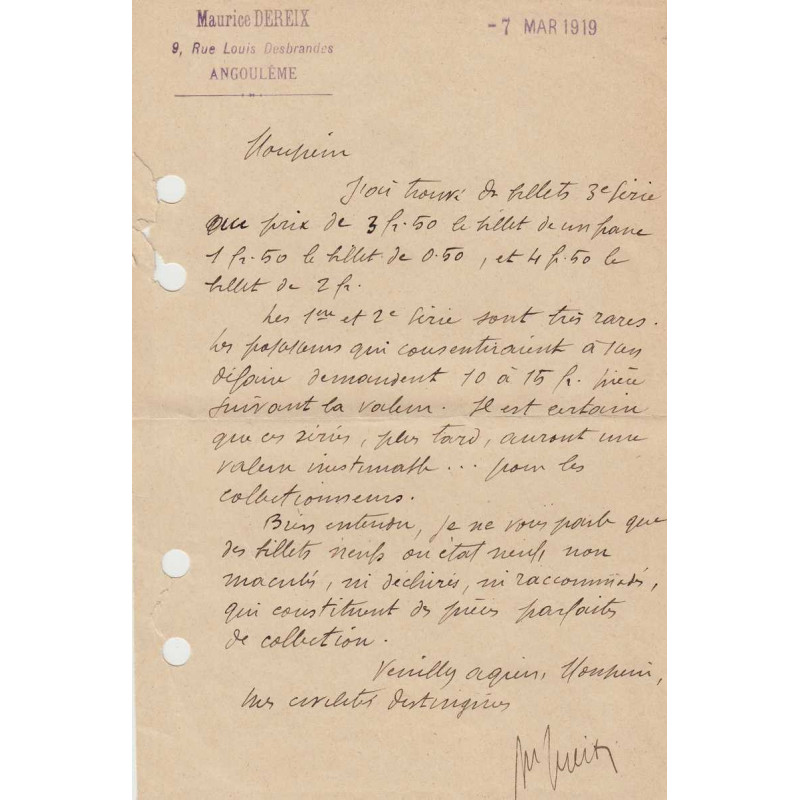 Maurice DEREIX
9, Rue Louis Desbrandes
ANGOULÊME
-7 MAR 1919
Monsieur
J'ai trouvé des billets 3e Série
au prix de 3 fr.50 le billet de un franc
1 fr.50 le billet de 0.50, et 4 fr.50 le
billet de 2 fr.
Les 1ère et 2e Série sont très rares.
Les possesseurs qui consentiraient à s'en
défaire demandent 10 à 15 fr. pièce
suivant la valeur. Il est certain
que ces séries, plus tard, auront une
valeur inestimable... pour les
collectionneurs.
Bien entendu, je ne vous parle que
des billets neufs ou état neuf, non
maculés, ni déchirés, ni raccommodés,
qui constituent des pièces parfaites
de collection.
Veuillez agréer, Monsieur,
mes civilités distinguées